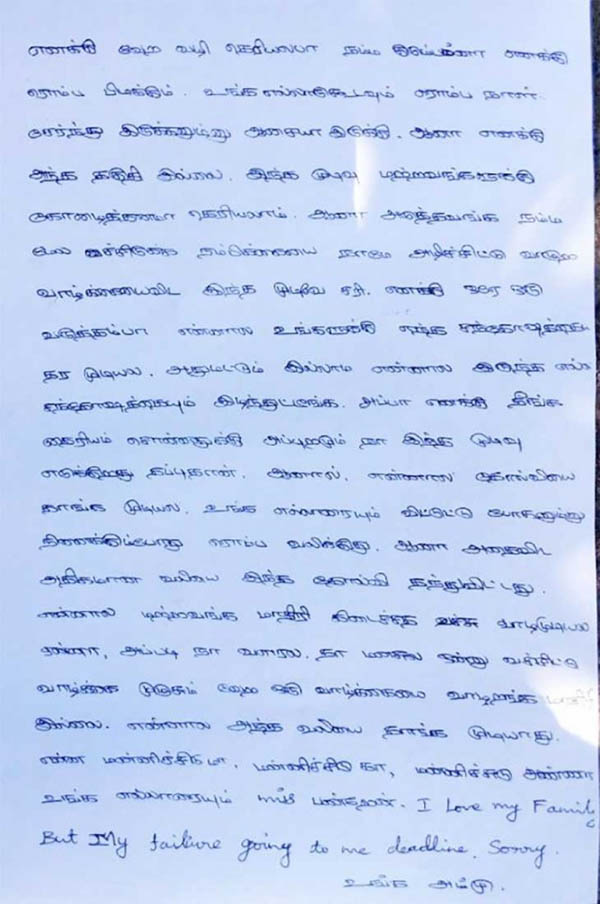 எனக்கு வேற வழி தெரியலபா எனக்கு
ரொம்ப பிடிக்கும். உங்க எல்லாகூடவும் ரொம்ப நாள்
சேர்ந்து இருக்கணும்னு ஆசையா இருக்கு. ஆனா எனக்கு
அந்த தகுதி இல்லை. இந்த முடிவு மற்றவங்களுக்கு
தெரியலாம். ஆனா அடுத்தவங்க நம்ம
மேல நம்பிக்கையை நாமே அழிச்சிட்டு வாழுற
வாழ்க்கையைவிட இந்த முடிவே சரி. எனக்கு ஒரே ஒரு
வருத்தம்பா என்னால உங்களுக்கு எந்த சந்தோஷத்தை
தர முடியல. அதுமட்டும் இல்லாம என்னால இருந்த எல்லா
சந்தோஷத்தையும் அப்பா எனக்கு நீங்க
தைரியம் சொன்னதுக்கு அப்புறமும் நா இந்த முடிவு
எடுக்குறது தப்புதான். ஆனால், என்னால தோல்வியை
தாங்க முடியல. உங்க எல்லாரையும் விட்டுட்டு போகணும்னு
நினைக்கும்போது ரொம்ப வலிக்குது. ஆனா அதைவிட
அதிகமான வலியை இந்த தோல்வி தந்துவிட்டது.
என்னால மற்றவங்க மாதிரி கிடைச்சத வச்சு வாழமுடியல
அப்படி நா வாழல. நா மனசுல ஒன்னு வச்சிட்டு
வாழ்க்கை முழுசும் வேற ஒரு வாழ்க்கையை
இல்லை. என்னால அந்த வலியை தாங்க முடியாது.
என்ன மன்னிச்சிடுமா, மன்னிச்சிடு கா, மன்னிச்சிடு அண்ணா
உங்க எல்லாரையும் miss பண்றேன். I Love my Family
But My failure going to me deadline. Sorry.
உங்க அம்மு.